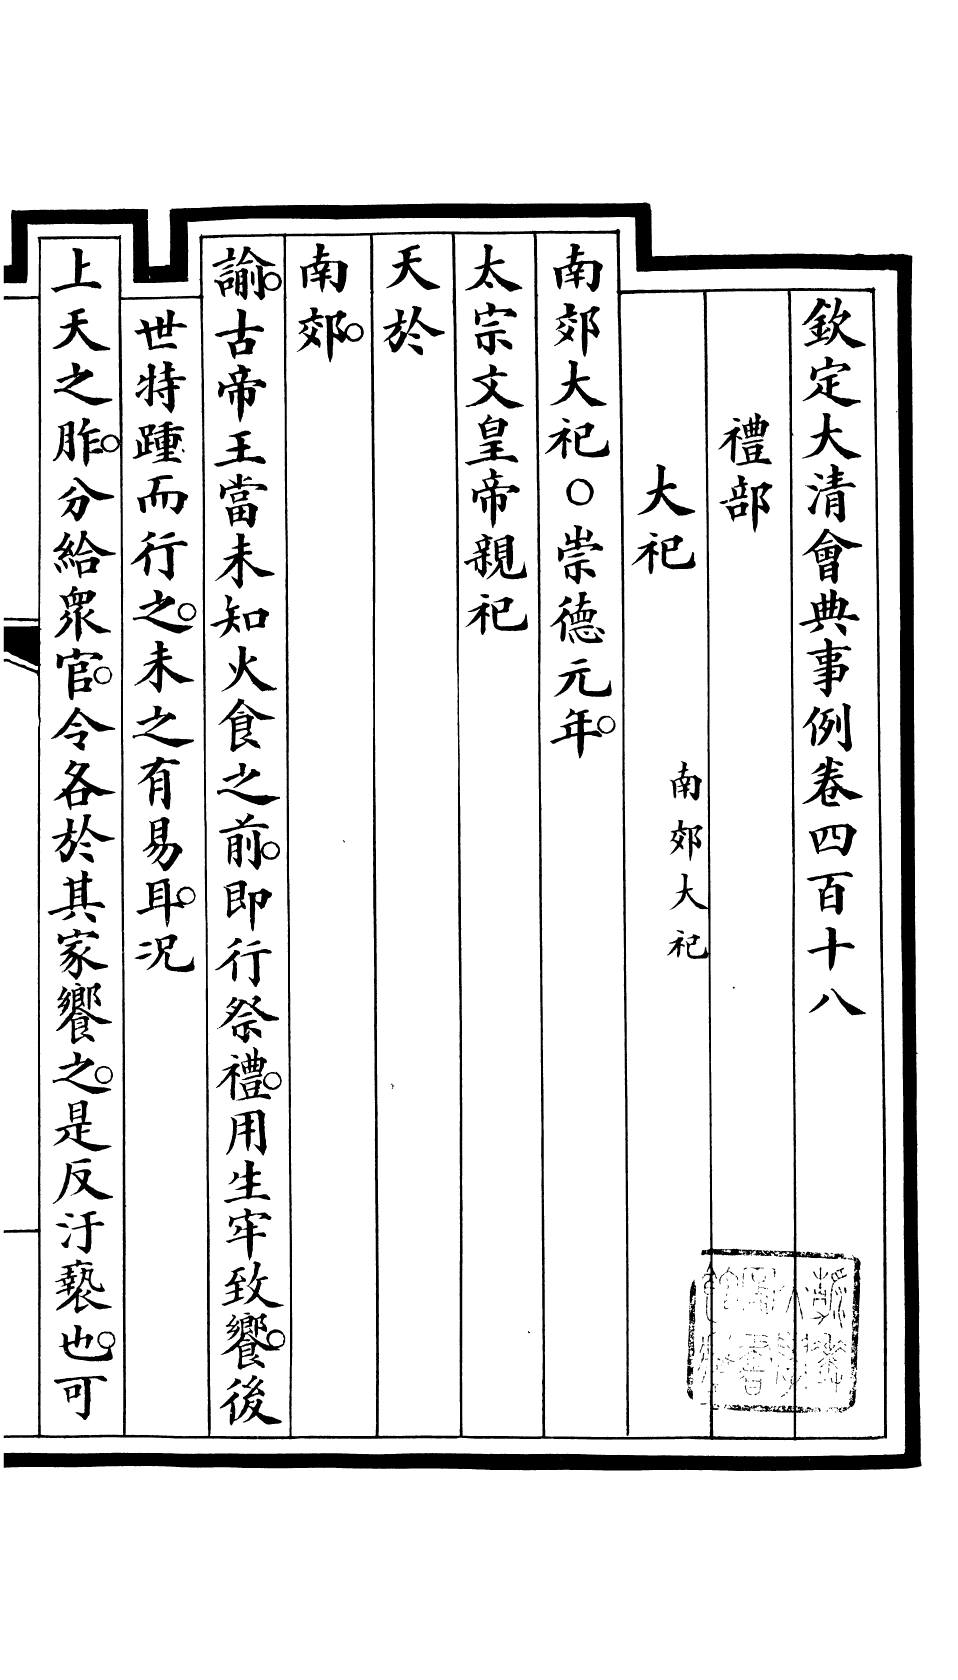 欽定大清會典事例卷四百十八
禮部
大祀
南郊大祀
南郊大祀○崇德元年。
太宗文皇帝親祀
天於
南郊。
諭。古帝王當未知火食之前。即行祭禮。用生牢致饗。後
世特踵而行之。未之有易耳。況
上天之胙。分給眾官。令各於其家饗之。是反汙褻也。可